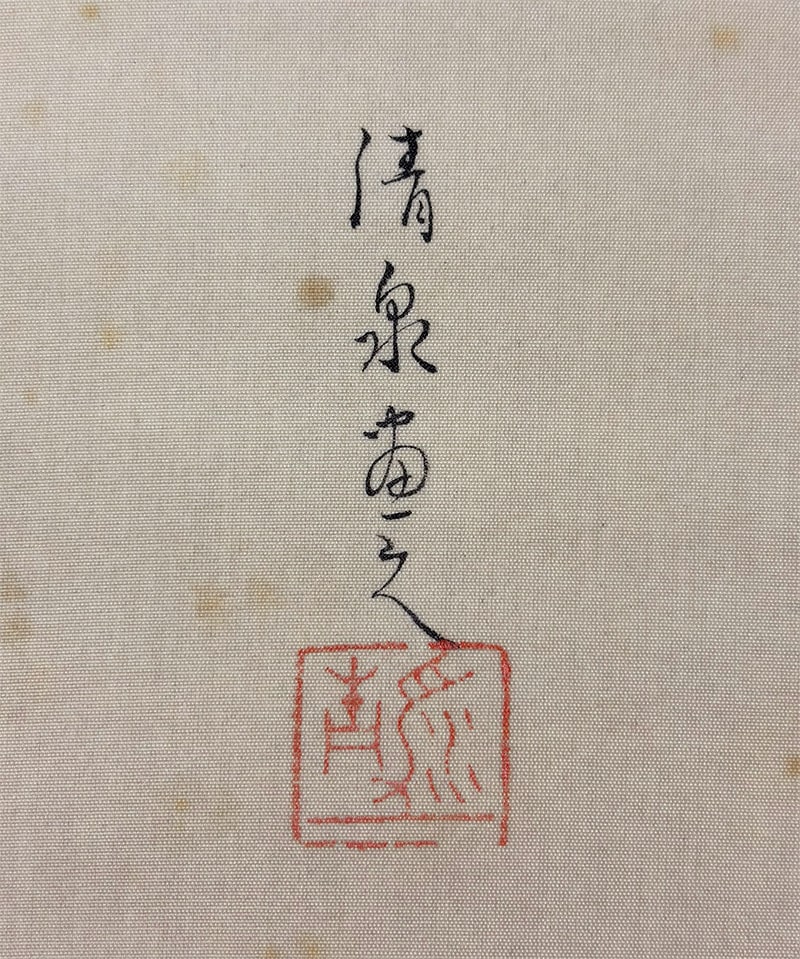 清泉畫之